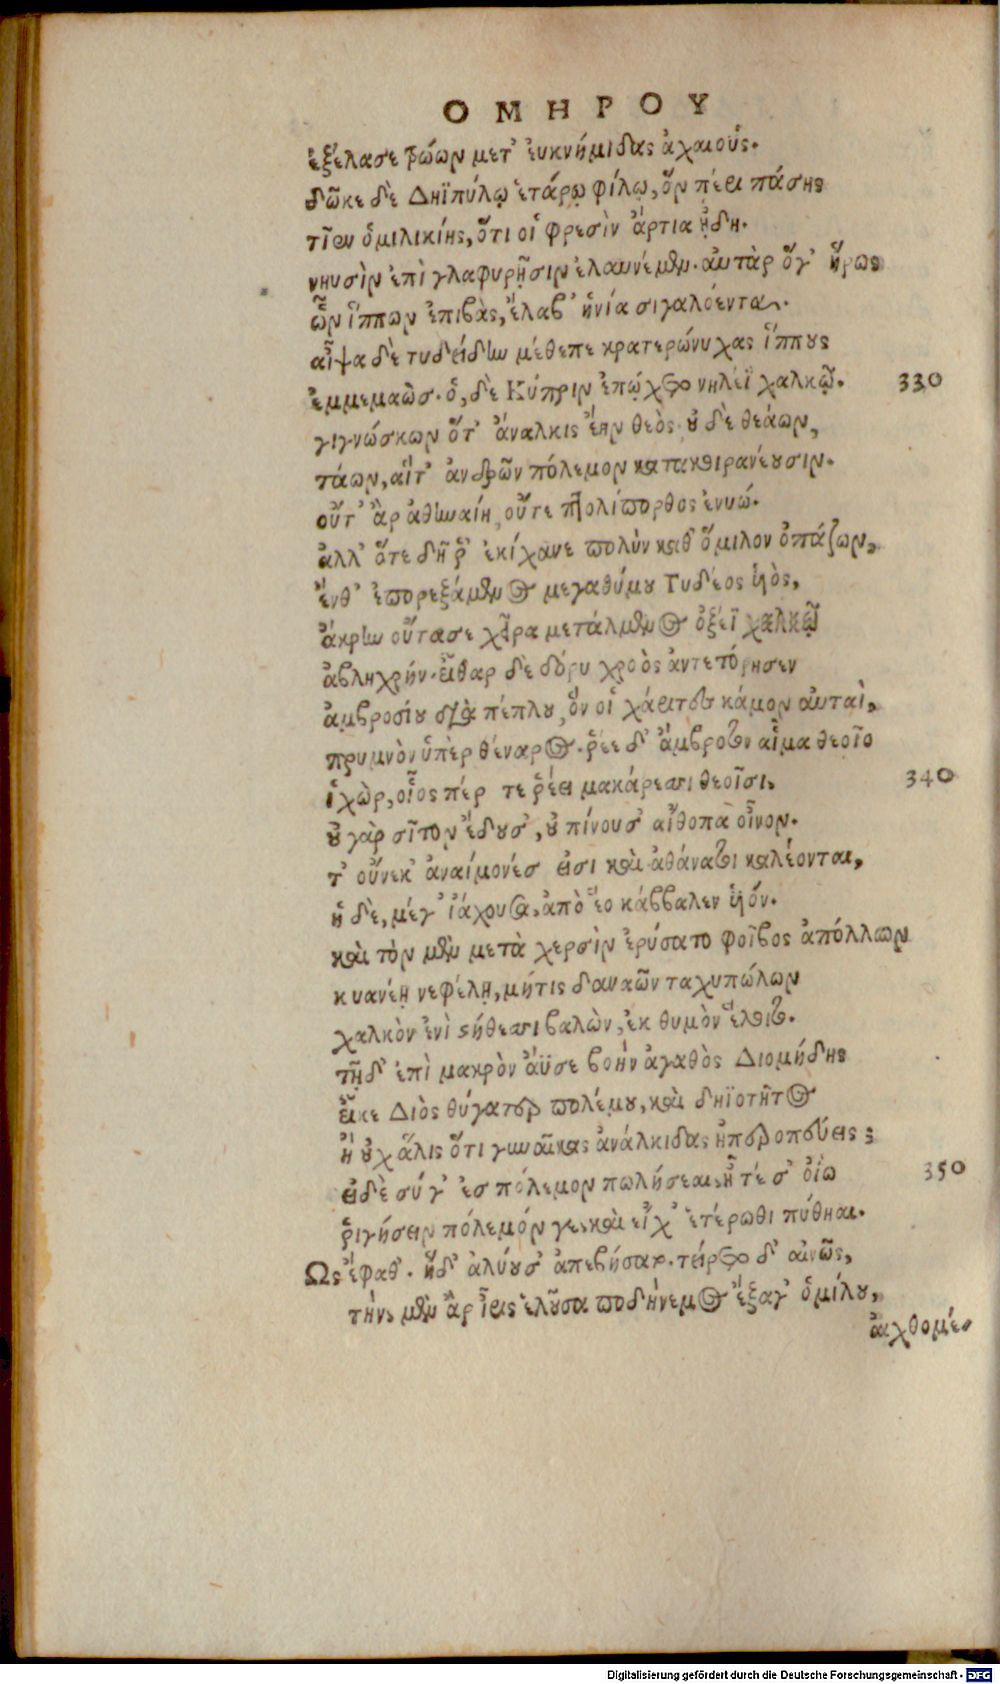 ΟΜΗΡΟΥ
ἐξέλασε τρώων μετ' ἐυκνήμιδας ἀχαιούς.
δῶκε δὲ Δηϊπύλῳ ἑτάρῳ φίλῳ, ὃν πέρι πάσης
τῖεν ὁμιλικίης, ὅτι οἱ φρεσὶν ἄρτια ᾔδη.
νηυσὶν ἐπὶ γλαφυρῇσιν ἐλαυνέμεν. αὐτὰρ ὅγ' ἥρως
ὧν ἵππων ἐπιβὰς, ἔλαβ' ἡνία σιγαλόεντα.
αἶψα δὲ τυδείδην μέθεπε κρατερώνυχας ἵππους
ἐμμεμαὼς. ὁ, δὲ Κύπριν ἐπῴχετο νηλέϊ χαλκῷ. 330
γιγνώσκων ὅτ' ἄναλκις ἔην θεὸς, οὐ δὲ θεάων,
τάων, αἵτ' ἀνδρῶν πόλεμον κατακοιρανέουσιν.
οὔτ' ἂρ ἀθηναίη, οὔτε πτολίπορθος ἐνυώ.
ἀλλ' ὅτε δῆ ῥ' ἐκίχανε πολὺν καθ' ὅμιλον ὀπάζων,
ἔνθ' ἐπορεξάμενος μεγαθύμου Τυδέος ὑιὸς,
ἄκρην οὔτασε χεῖρα μετάλμενος ὀξέϊ χαλκῷ
ἀβληχρήν. εἶθαρ δὲ δόρυ χροὸς ἀντετόρησεν
ἀμβροσίου διὰ πέπλου, ὅν οἱ χάριτες κάμον αὐταὶ,
πρυμνὸν ὑπὲρ θέναρος. ῥέε δ' ἄμβροτον αἷμα θεοῖο
ἰχὼρ, οἷος πέρ τε ῥέει μακάρεσσι θεοῖσι, 340
οὐ γὰρ σῖτον ἔδουσ', οὐ πίνουσ' αἴθοπα οἶνον.
τ' οὔνεκ' ἀναίμονές εἰσι καὶ ἀθάνατοι καλέονται,
ἡ δὲ, μέγ' ἰάχουσα, ἀπὸ ἕο κάββαλεν ὑιόν.
καὶ τὸν μὲν μετὰ χερσὶν ἐρύσατο φοῖβος ἀπόλλων
κυανέῃ νεφέλῃ, μήτις δαναῶν ταχυπώλων
χαλκὸν ἐνὶ στήθεσσι βαλὼν, ἐκ θυμὸν ἕλοιτο.
τῇ δ' ἐπὶ μακρὸν ἄϋσε βοὴν ἀγαθὸς Διομήδης
εἶκε Διὸς θύγατερ πολέμου, καὶ δηϊοτῆτος
ἢ οὐχ ἅλις ὅτι γυναῖκας ἀνάλκιδας ἠπεροπεύεις;
εἰ δὲ σύ γ' ἐς πόλεμον πωλήσεαι, ἦ τέ σ' ὀΐω 350
ῥιγήσειν πόλεμόν γε, καὶ εἴ χ' ἑτέρωθι πύθηαι.
Ως ἔφαθ'. ἥδ' ἀλύουσ' ἀπεβήσατο. τείρετο δ' αἰνῶς,
τὴν, μὲν ἂρ ἶρις ἑλοῦσα ποδήνεμος ἔξαγ' ὁμίλου,
ἀχθομέ-
Digitalisierung gefördert durch die Deutsche Forschungsgemeinschaft - DFG